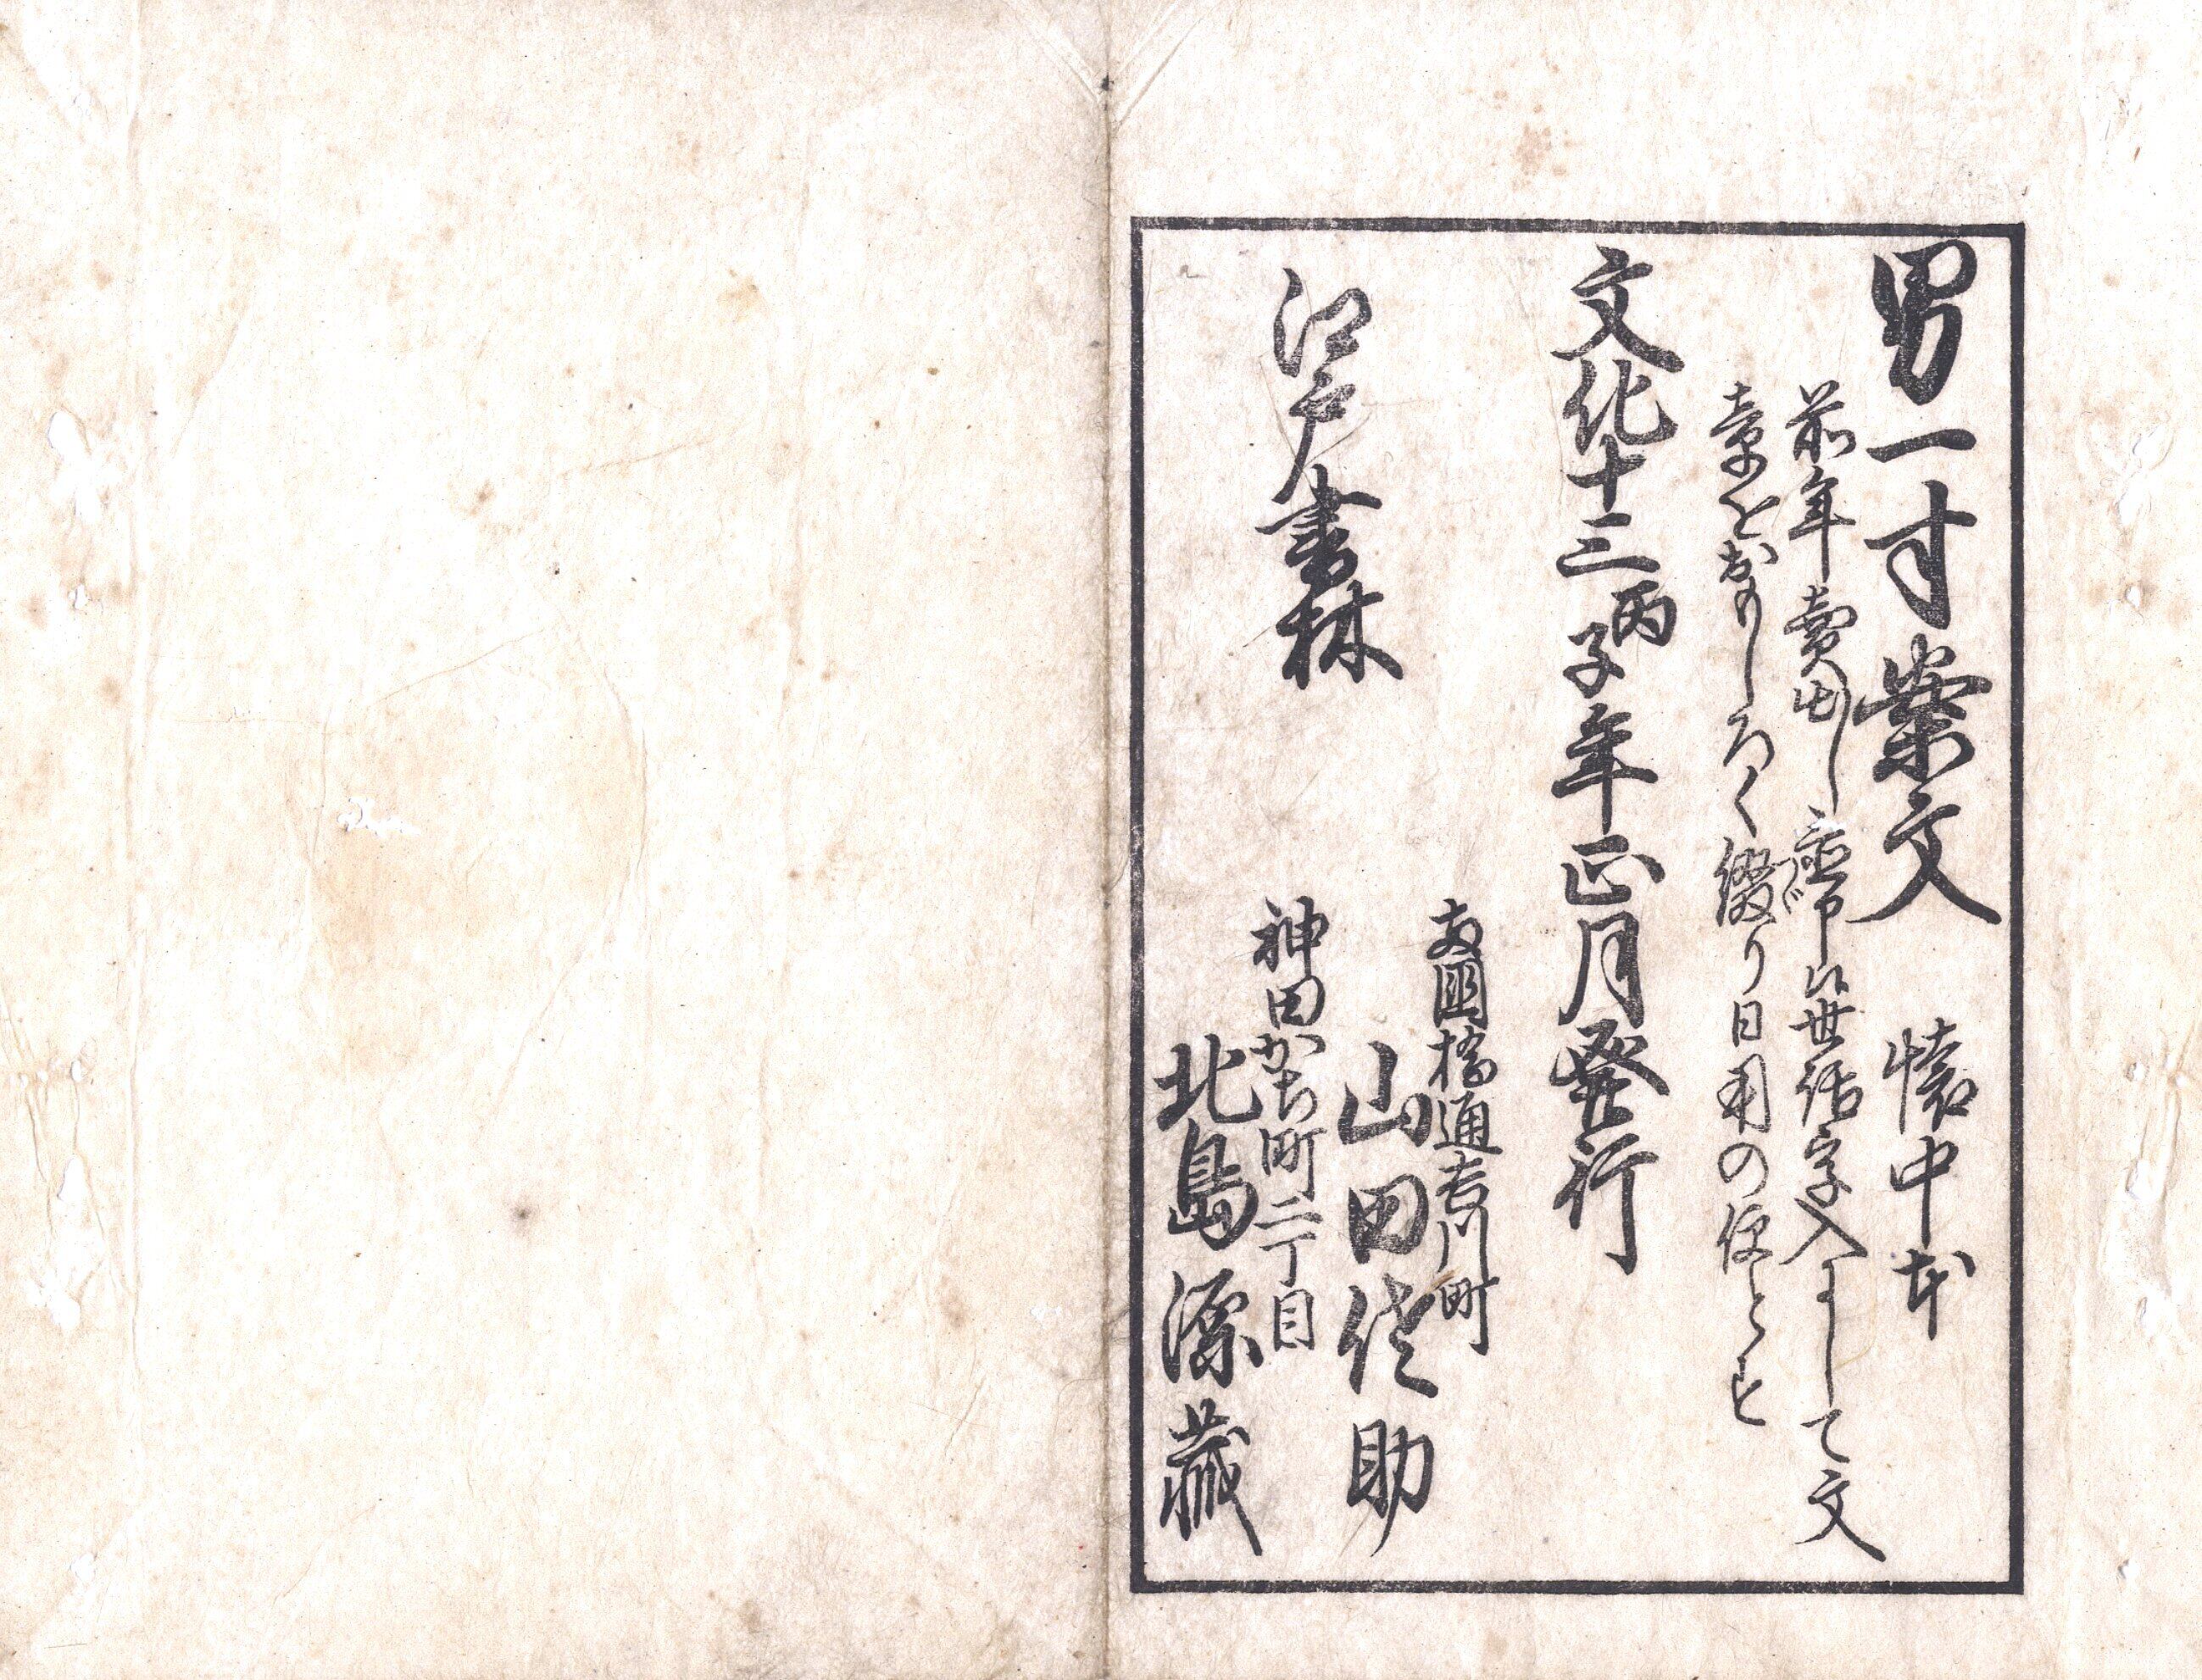 男一寸案文　懐中本
前年賣出し候世話字入にして文
章をおもしろく綴り日用の便とす
文化十三丙子年正月発行
江戸書林
両國橋通吉川町
山田佐助
神田かぢ町二丁目
北島源蔵